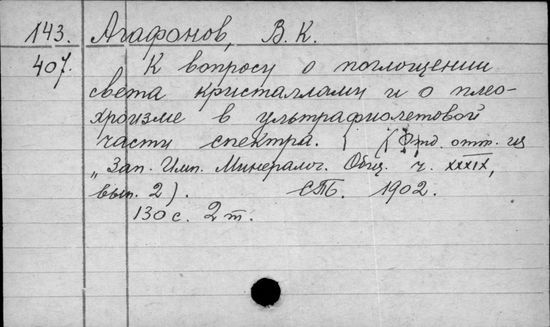 143. Агафонов, В. К.
407. К вопросу о поглощении
света кристаллами и о плео-
хроизме в ультрафиолетовой
части спектра. (Отд. отт. из
„Зап. Имп. Минералог. Общ. ч. XXXIX,
вып. 2). СПб. 1902.
130 с. 2 т.